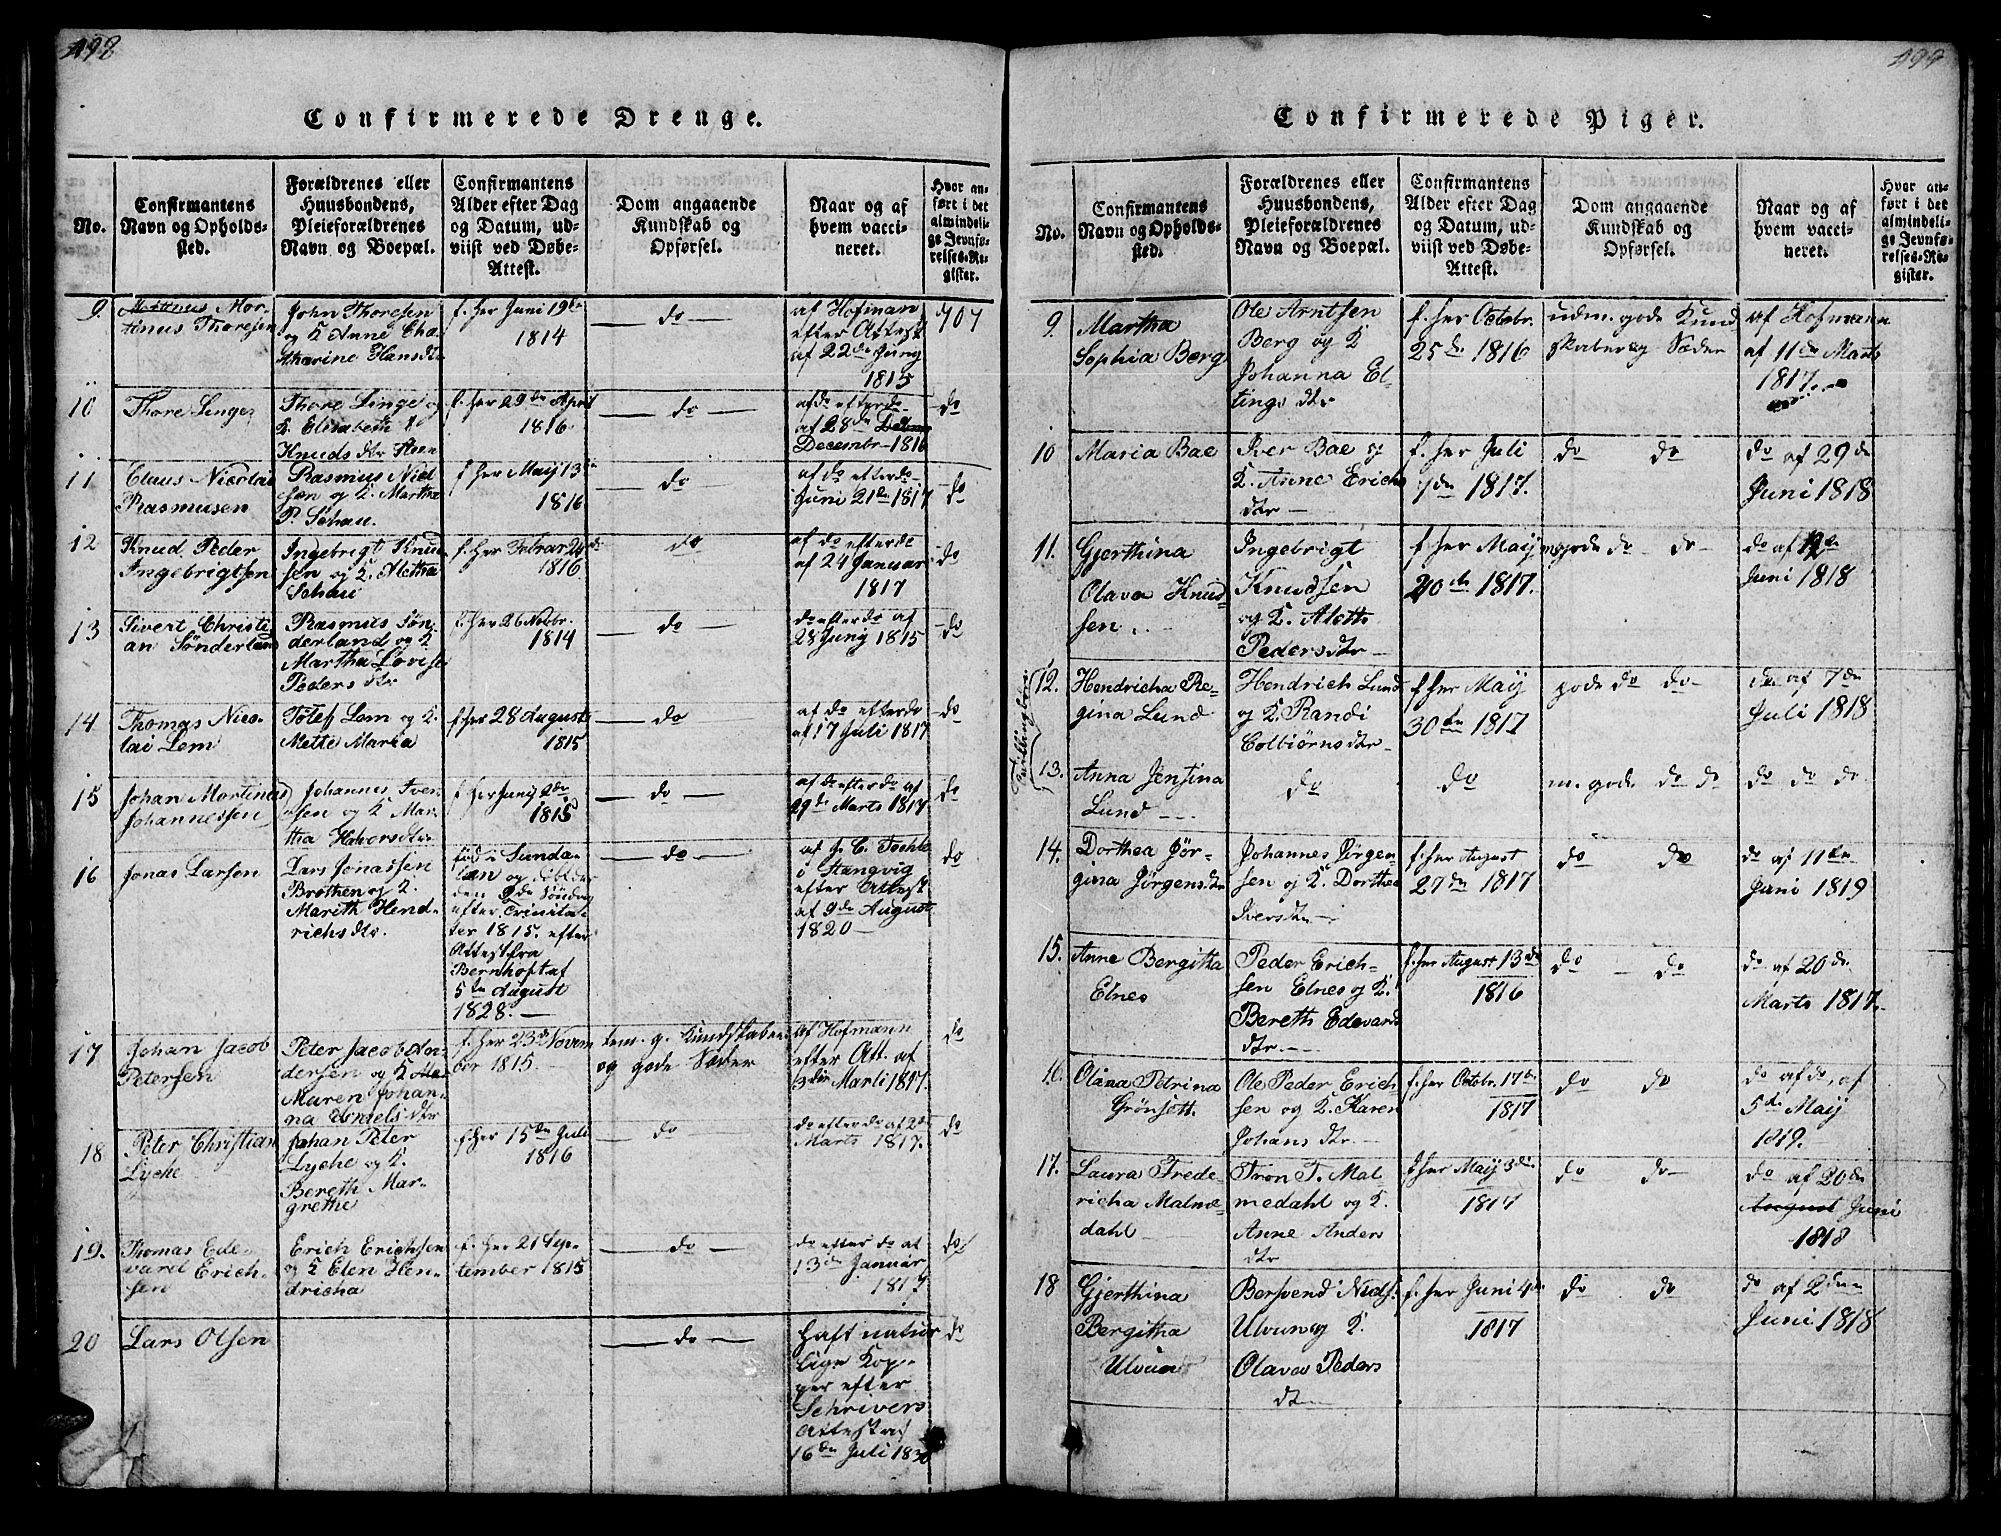 498
Confirmerede Drenge.
No.
Confirmantens
Navn og Opholds-
sted.
Forældrenes eller
Huusbondens,
Pleieforældrenes
Navn og Boepæl.
Confirmantens
Alder efter Dag
og Datum, ud-
viist ved Døbe-
Attest.
Dom angaaende
Kundskab og
Opførsel.
Naar og af
hvem vacci-
neret.
Hvor an-
ført i det
almindeli-
ge Jevnfø-
relses-Re-
gister.
9
Mor-
tinus Thoresen
John Thoresen
og K Anne Cha
tharine Hansdtr
f. her Juni 19de
1814
do
af Hofman
efter Attest
af 22de Juny
1815
707
10
Thore Linge
Thore Linge og
K. Elisabeth
Knuds dtr
f. her 29de April
1816
do
af do efter do
af 28de
Decembr 1816
do
11
Claus Nicolai
Rasmusen
Rasmus Niel
sen og K. Martha
P. Schau.
f her Maij 13de
1816
do
af do efter do
Juni 21de 1817
do
12
Knud Peder
Ingebrigtsen
Ingebrigt Knud
sen og K. Aletha
Schau
f. her Februar 24de
1816
do
af do efter do
af 24 Januar
1817
do
13
Sivert Christi
an Sønderland
Rasmus Søn
derland og K
Martha Lovise
Peders dtr
f. her 26 Novbr.
1814
do
do efter do af
28 Juny 1815
do
14
Thomas Nico
lai Lem
Tølef Lem og K.
Mette Maria
f her 28 August
1815
do
af do efter do
af 17 Juli 1817
do
15
Johan Martinus
Johannessen
Johannes Iver
sen og K Mar
tha Halvorsdtr
f her Junij 2de
1815
do
af do efter do af
29de Marts 1817
do
16
Jonas Larsen
Lars Jonassen
Brøthen og K.
Marith Hend
richs dtr.
fød i Sunda
len og døbt
den 9de Søndag
efter Trinita
ter 1815. efter
Attest fra
Bernhoft af
5te August
1828.
do
af J. C. Tochle
i Stangvig
efter Attest
af 9de August
1820
do
17
Johan Jacob
Petersen
Peter Jacob An
dersen og K
Maren Johan
na Israels dtr
f. her 23de Novem
ber 1815.
tem. g. Kundskaber
og gode Sæder
af Hofmann
efter Att. af
3die Marti 1817.
do
18
Peter Christian
Lyche
Johan Peter
Lyche og K.
Bereth Mar
grethe
f her 15de Juli
1816
do
do efter do af 2de
Marts 1817.
do
19.
Thomas Ede
vard Erich
sen
Erich Erichsen
og K Elen Hen
dricha
f. her 21 Sep
tember 1815
do
do efter do af
13de Januar
1817
do
20
Lars Olsen
do
haft natur
lige Kop
per efter
Schrivers
Attest af
16de Juli 1830
do
499
Confirmerede Piger.
No.
Confirmantens
Navn og Opholds-
sted.
Forældrenes eller
Huusbondens,
Pleieforældrenes
Navn og Boepæl.
Confirmantens
Alder efter Dag
og Datum, ud-
viist ved Døbe-
Attest.
Dom angaaende
Kundskab og
Opførsel.
Naar og af
hvem vacci-
neret.
Hvor an-
ført i det
almindeli-
ge Jevnfø-
relses-Re-
gister.
9.
Martha
Sophia Berg
Ole Arntsen
Berg og K
Johanna El-
lings dtr
f. her Octobr.
25de 1816
udm. gode Kund
skaber og Sæder
af Hofmann
af 11de Marts
1817.
10
Maria Bae
Iver Bae og
K. Anne Erichs
dtr
f. her Juli
7de 1817.
do do
do af 29de
Juni 1818
11.
Gjerthina
Olava Knud-
sen
Ingebrigt
Knudsen
og K. Aleth
Peders dtr
f her Maij
20de 1817.
m gode do do
do af 12de
Juni 1818
Tvillingbørn
12.
Hendricha Re-
gina Lund
Hendrich Lund
og K. Randi
Colbiørns dtr
f her Maij
30te 1817
gode do do
do af 7de
Juli 1818
13.
Anna Jensina
Lund
do
do
m. gode do do
do do do
14.
Dorthea Jør-
gina Jørgensdtr
Johannes Jørgen
sen og K. Dorthea
Ivers dtr
f. her August
27de 1817
do do
do af 11de
Juni 1819
15.
Anne Bergitha
Elnes
Peder Erich-
sen Elnes og K.
Bereth Edevards
dtr.
f. her August 13de
1816
do do
do af 20de
Marts 1817.
16.
Olina Petrina
Grønsett.
Ole Peder Erich-
sen og K. Karen
Johans dtr.
f. her Octobr. 17de
1817
do do
do af do, af
5te Maij
1819.
17.
Laura Frede-
richa Malme-
dahl
Tron T. Mal-
medahl og K.
Anne Anders
dtr
f her Maij 3de.
1817
do do
do af 20de
August Juni
1818
18
Gjerthina
Bergitha
Ulvun
Bersvend Niels.
Ulvun og K.
Olava Peders
dtr
f. her Juni 4de
1817
do do
do af 2den
Juni 1818